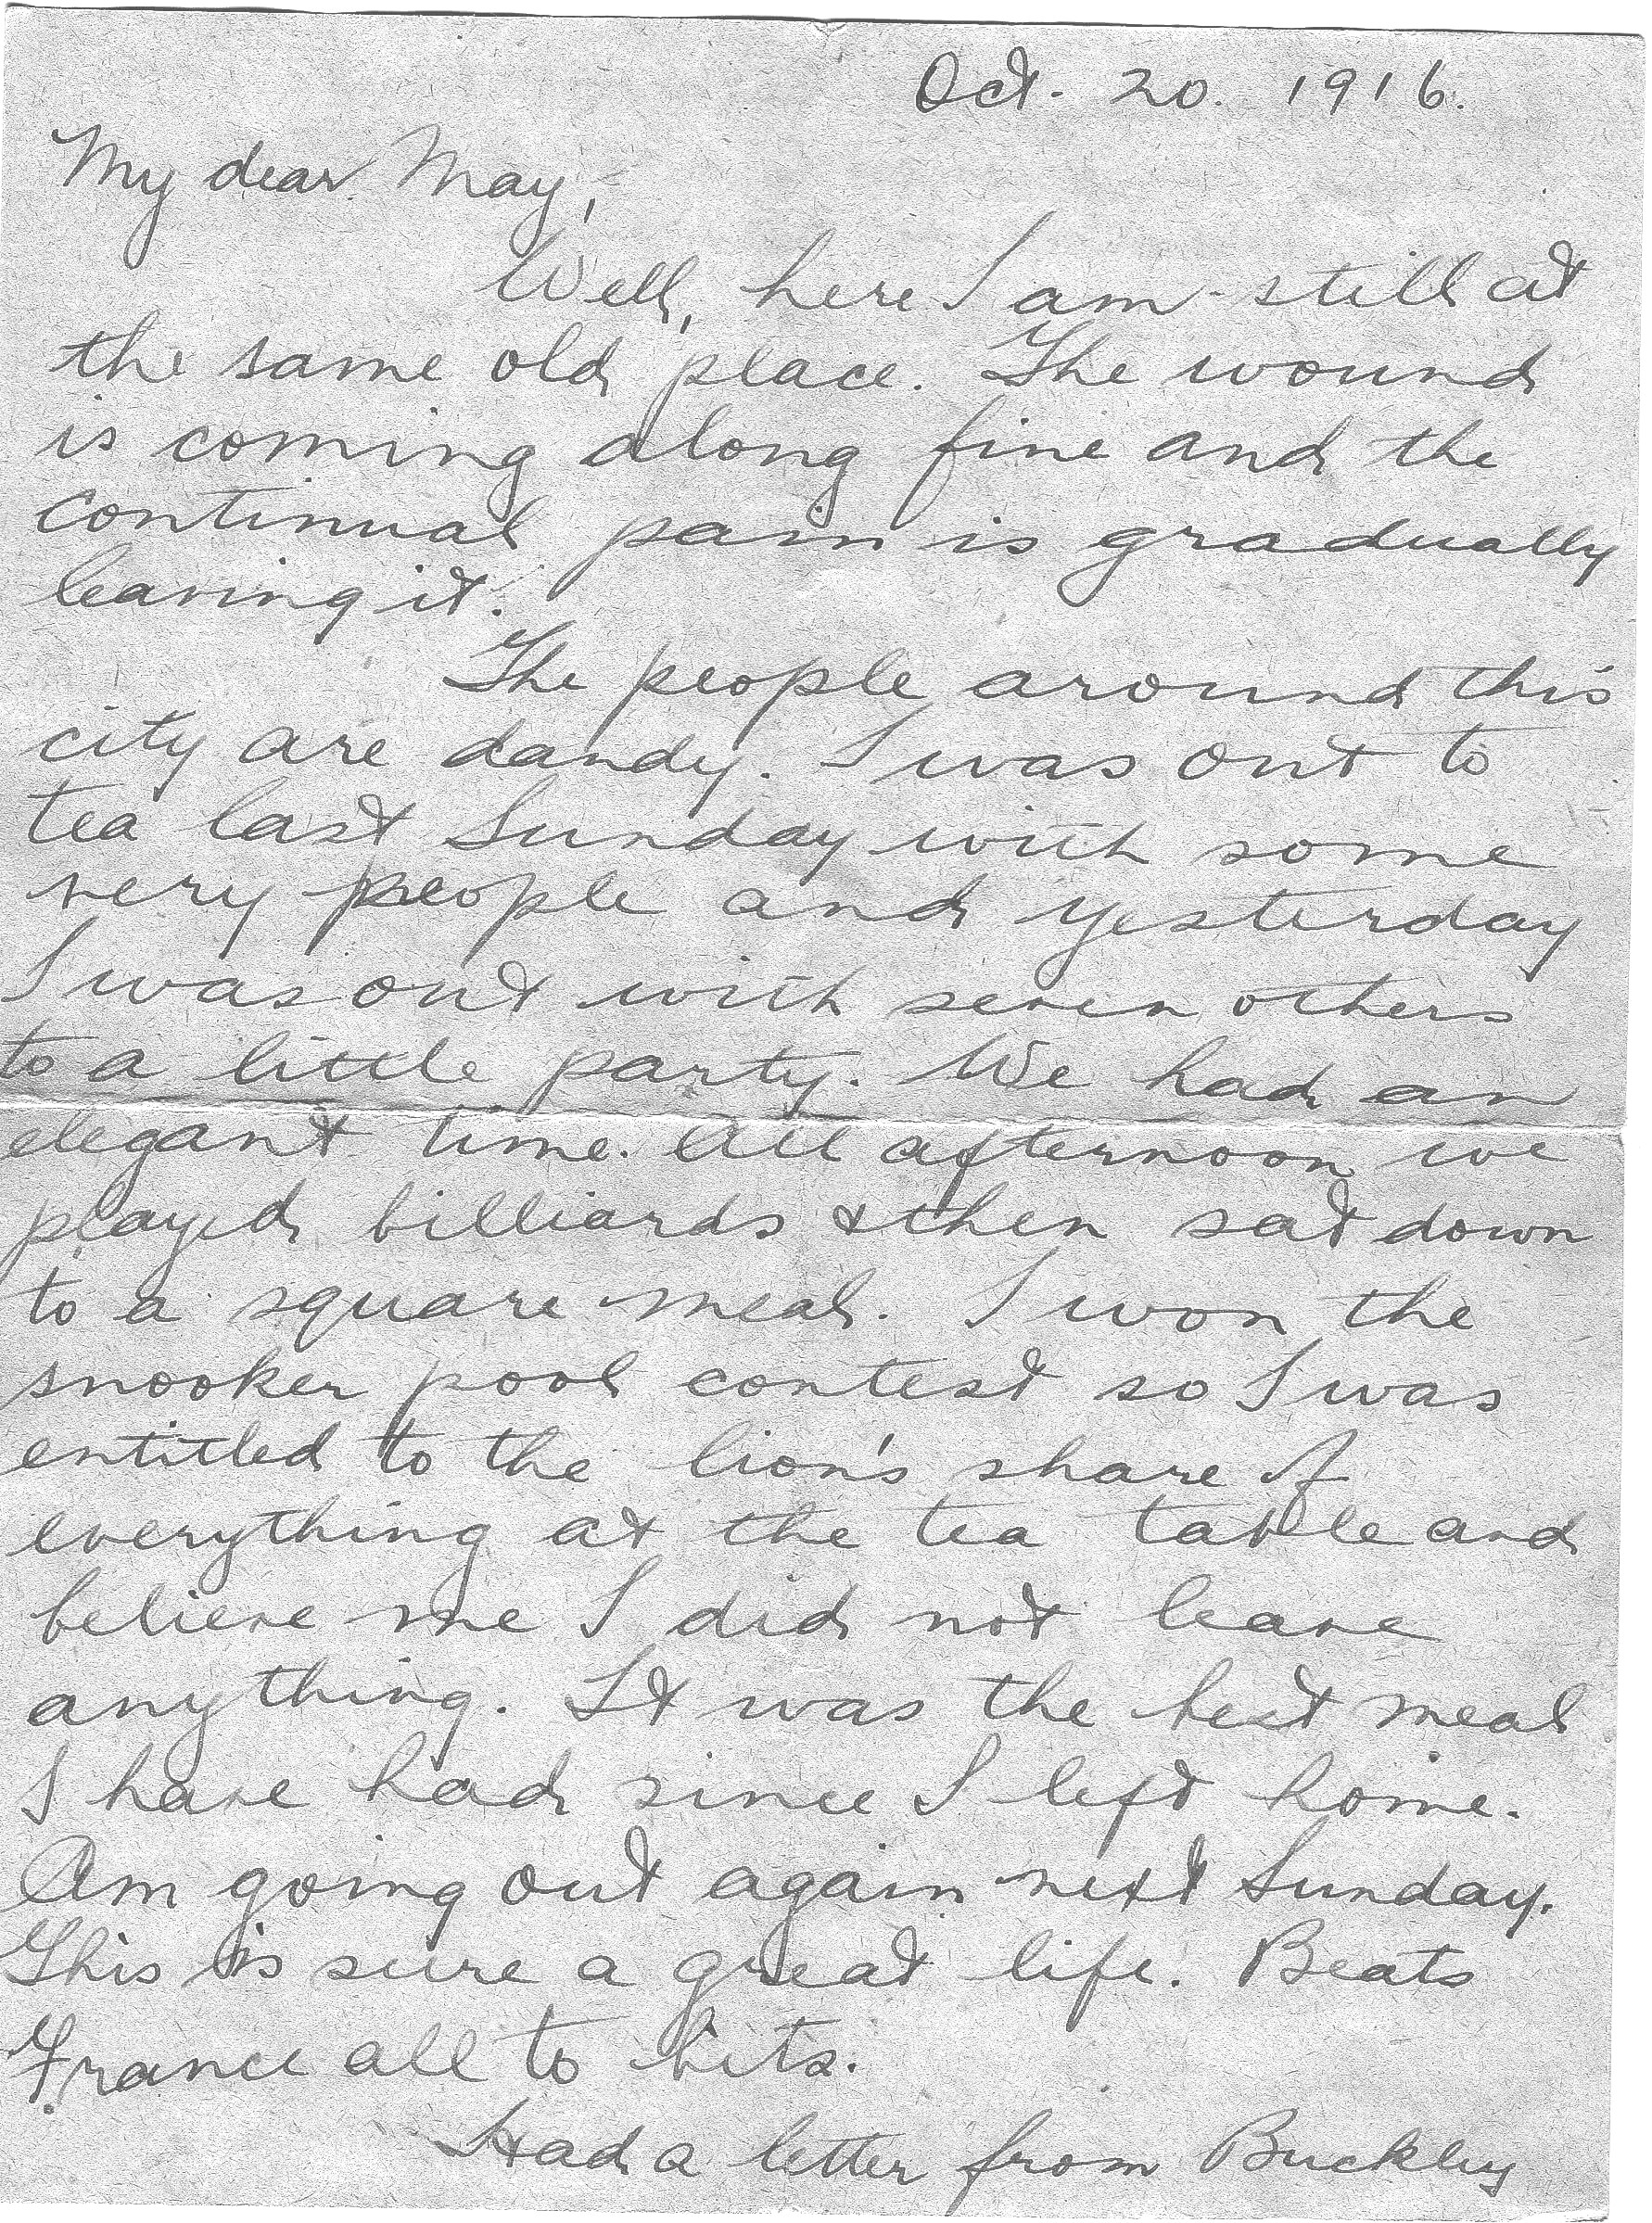 Oct. 20. 1916.
My dear May,
Well, here I am still at
the same old place. The wound
is coming along fine and the
continual pain is gradually
leaving it.
The people around this
city are dandy. I was out to
tea last Sunday with some
very people and yesterday
I was out with seven others
to a little party. We had an
elegant time. All afternoon we
played billiards & then sat down
to a square meal. I won the
snooker pool contest so I was
entitled to the lion's share of
everything at the tea table and
believe me I did not leave
anything. It was the best meal
I have had since I left home.
Am going out again next Sunday.
This is sure a great life. Beats
France all to bits.
Had a letter from Buckley